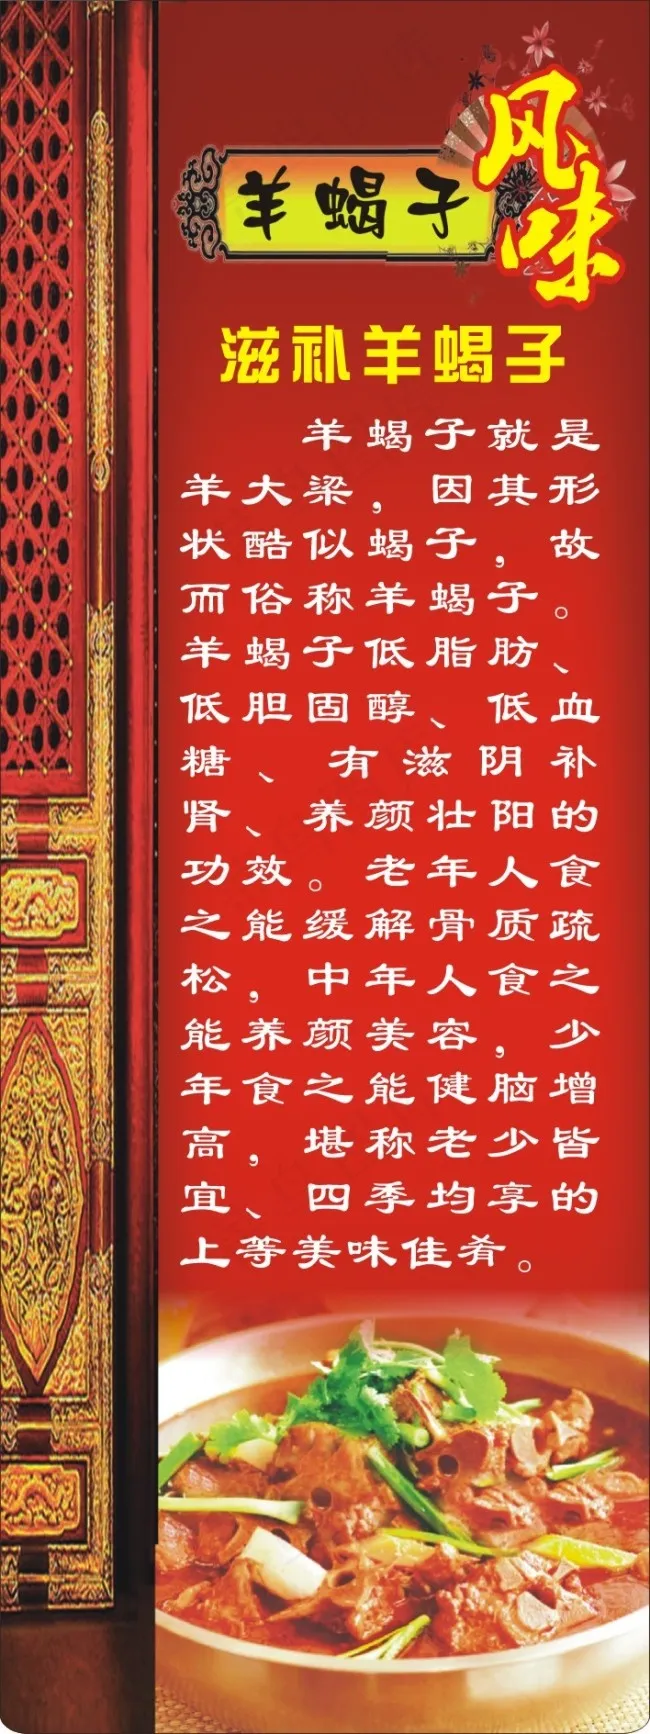 羊蝎子
风味
滋补羊蝎子
羊蝎子就是
羊大梁，因其形
状酷似蝎子，故
而俗称羊蝎子。
羊蝎子低脂肪、
低胆固醇、低血
糖、有滋阴补
肾、养颜壮阳的
功效。老年人食
之能缓解骨质疏
松，中年人食之
能养颜美容，少
年食之能健脑增
高，堪称老少皆
宜、四季均享的
上等美味佳肴。